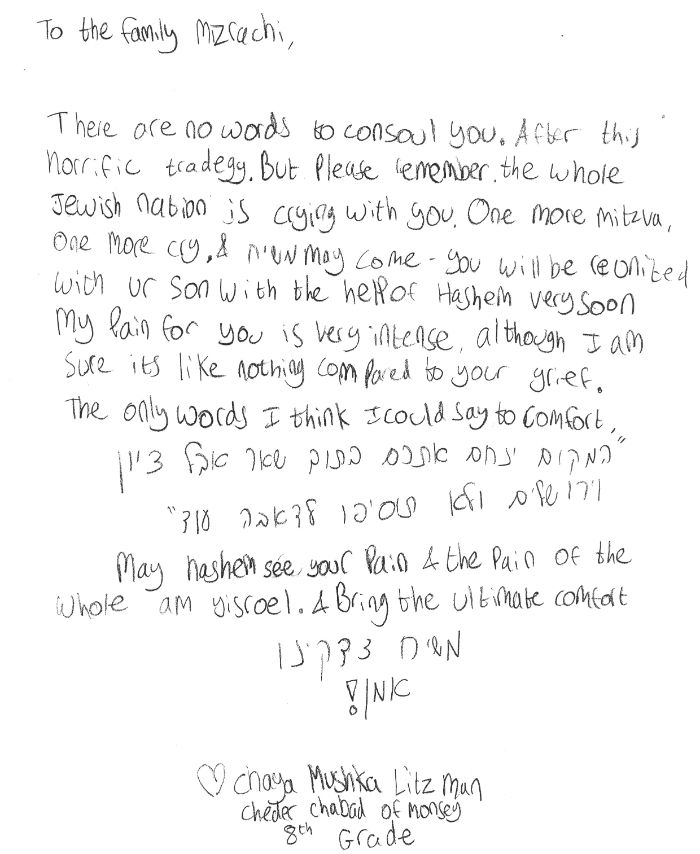 To the family Mizrachi,
There are no words to consoul you. After this
horrific tradegy. But Please remember. the whole
Jewish nation is crying with you. One more mitzva,
One more cry, & משיח may come - you will be reunited
with ur son with the help of Hashem very soon
My Pain for you is very intense, although I am
sure its like nothing compared to your grief.
The only words I think I could say to comfort,
"המקום ינחם אתכם בתוך שאר אבלי ציון
וירושלים ולא תוסיפו לדאבה עוד"
May hashem see your Pain & the Pain of the
whole am yisroel. & Bring the ultimate comfort
משיח צדקינו
אמן!
♡ Chaya Mushka Litzman
cheder chabad of monsey
8th Grade